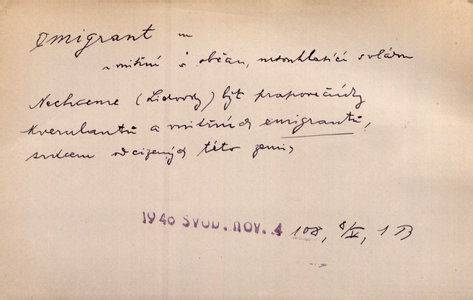 emigrant m
vnitřní e. občan, nesouhlasící s vládou
Nechceme (Lidovci) být praporečníky
kverulantů a vnitřních emigrantů,
srdcem odcizených této zemi,
1946 SVOB. NOV. 4 108, 8/V, 1 B